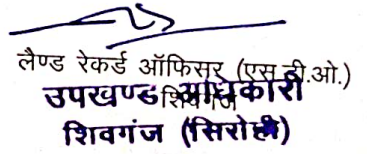 लैण्ड रेकर्ड ऑफिसर (एस.डी.ओ.)
शिवगंज
उपखण्ड अधिकारी
शिवगंज (सिरोही)